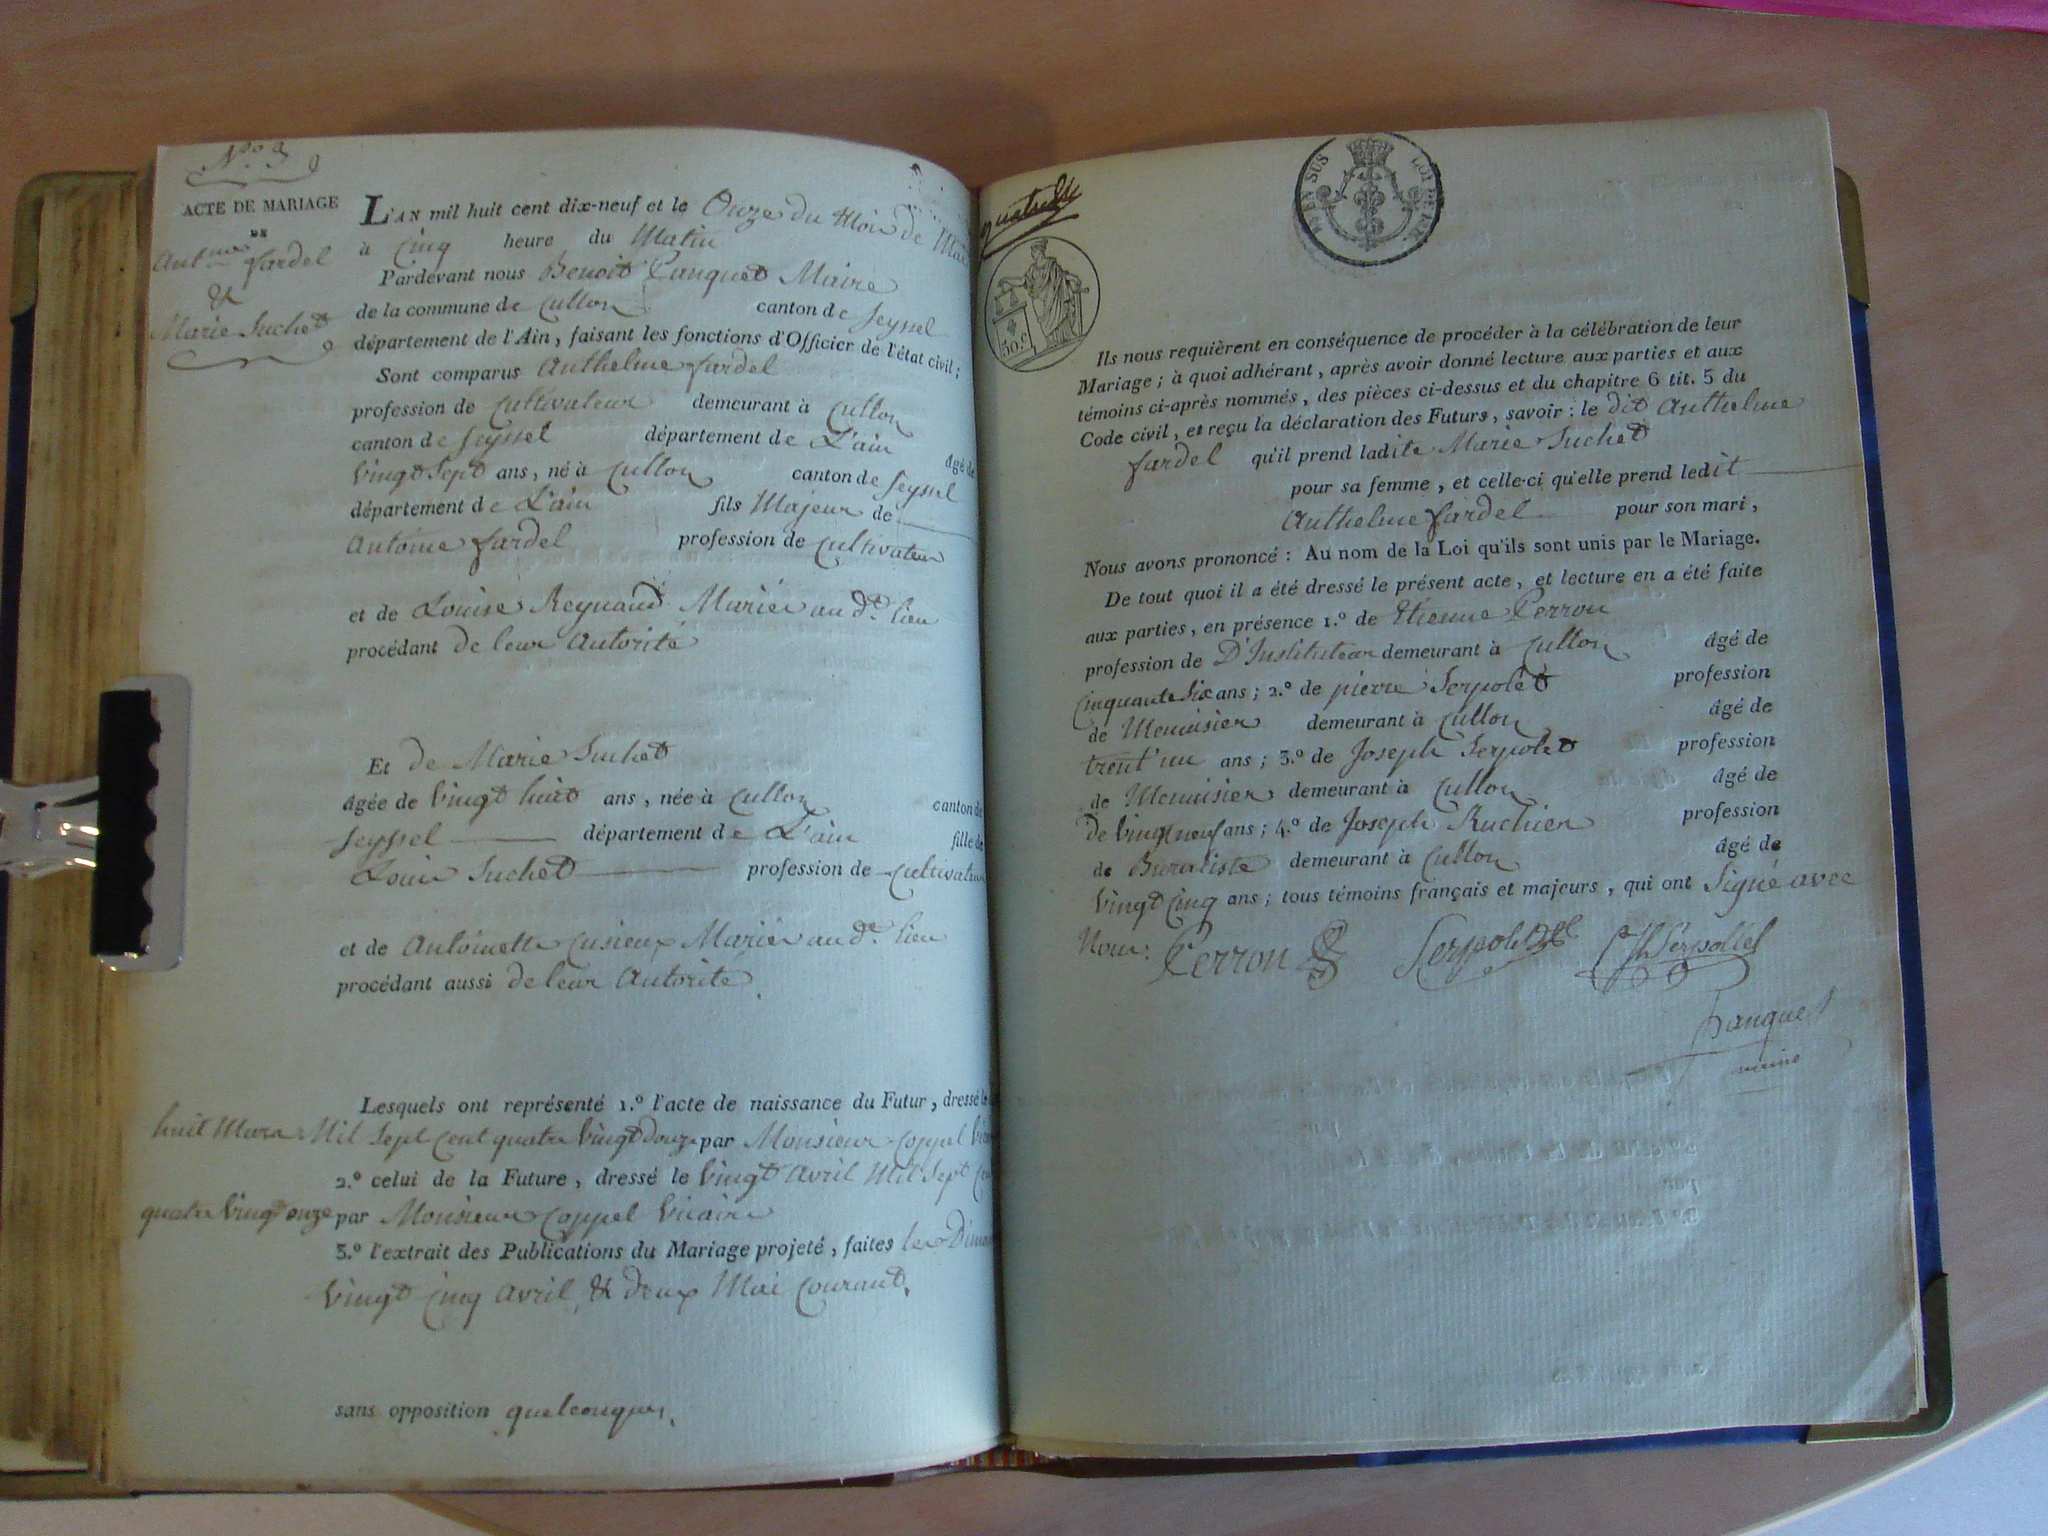 N.º 3
ACTE DE MARIAGE
DE
Ant.me fardel
&
Marie Suchet
L'AN mil huit cent dix-neuf et le Onze du Mois de Mai
à Cinq heure du Matin
Pardevant nous Benoit Panquet Maire
de la commune de Culloz canton de Seyssel
département de l'Ain, faisant les fonctions d'Officier de l'état civil;
Sont comparus Anthelme fardel
profession de Cultivateur demeurant à Culloz
canton de Seyssel département de L'ain âgé de
Vingt Sept ans, né à Culloz canton de Seyssel
département de L'ain fils Majeur de
Antoine fardel profession de Cultivateur
et de Louise Reynaud Mariés au d.t lieu
procédant de leur Autorité
Et de Marie Suchet
âgée de Vingt huit ans, née à Culloz canton de
Seyssel département de L'ain fille de
Louis Suchet profession de Cultivateur
et de Antoinette Cusieux Mariés au d.t lieu
procédant aussi de leur Autorité
Lesquels ont représenté 1.º l'acte de naissance du Futur, dressé le
huit Mars Mil Sept Cent quatre Vingt Douze par Monsieur Coppel
2.º celui de la Future, dressé le Vingt Avril Mil Sept Cent
quatre Vingt onze par Monsieur Coppel Vicaire
3.º l'extrait des Publications du Mariage projeté, faites les
Vingt Cinq Avril & deux Mai Courant,
sans opposition quelconques,
50.c
Ils nous requièrent en conséquence de procéder à la célébration de leur
Mariage; à quoi adhérant, après avoir donné lecture aux parties et aux
témoins ci-après nommés, des pièces ci-dessus et du chapitre 6 tit. 5 du
Code civil, et reçu la déclaration des Futurs, savoir: le dit Anthelme
fardel qu'il prend ladite Marie Suchet
pour sa femme, et celle-ci qu'elle prend ledit
Anthelme fardel pour son mari,
Nous avons prononcé: Au nom de la Loi qu'ils sont unis par le Mariage.
De tout quoi il a été dressé le présent acte, et lecture en a été faite
aux parties, en présence 1.º de Etienne Perron
profession de D'Instituteur demeurant à Culloz âgé de
Cinquante Six ans; 2.º de pierre Serpolet profession
de Menuisier demeurant à Culloz âgé de
trent'un ans; 3.º de Joseph Serpolet profession
de Menuisier demeurant à Culloz âgé de
De Vingt neuf ans; 4.º de Joseph Ruchier profession
de Buraliste demeurant à Culloz âgé de
Vingt Cinq ans; tous témoins français et majeurs, qui ont Signé avec
Nous: Perron Serpolet Serpollet
Panquet
maire